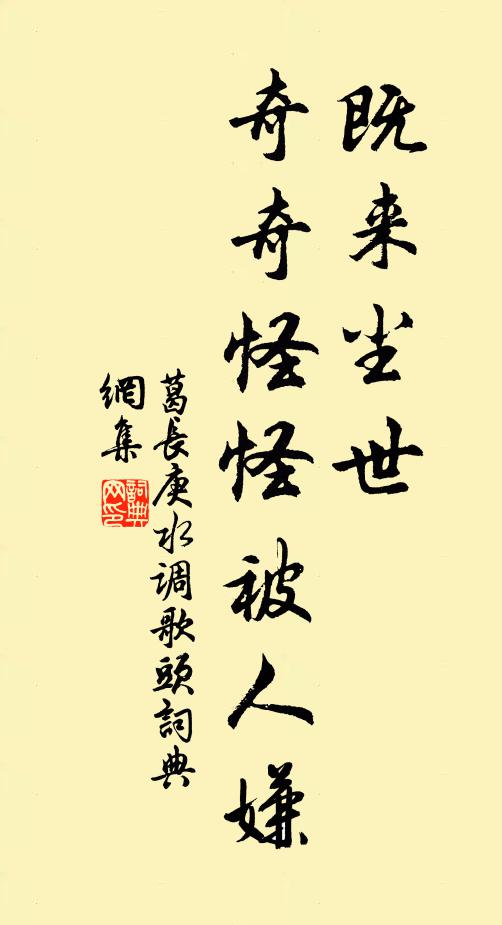 既来尘世
奇奇怪怪被人嫌
葛長庚水调歌頭詞典
網集
詞典
网印